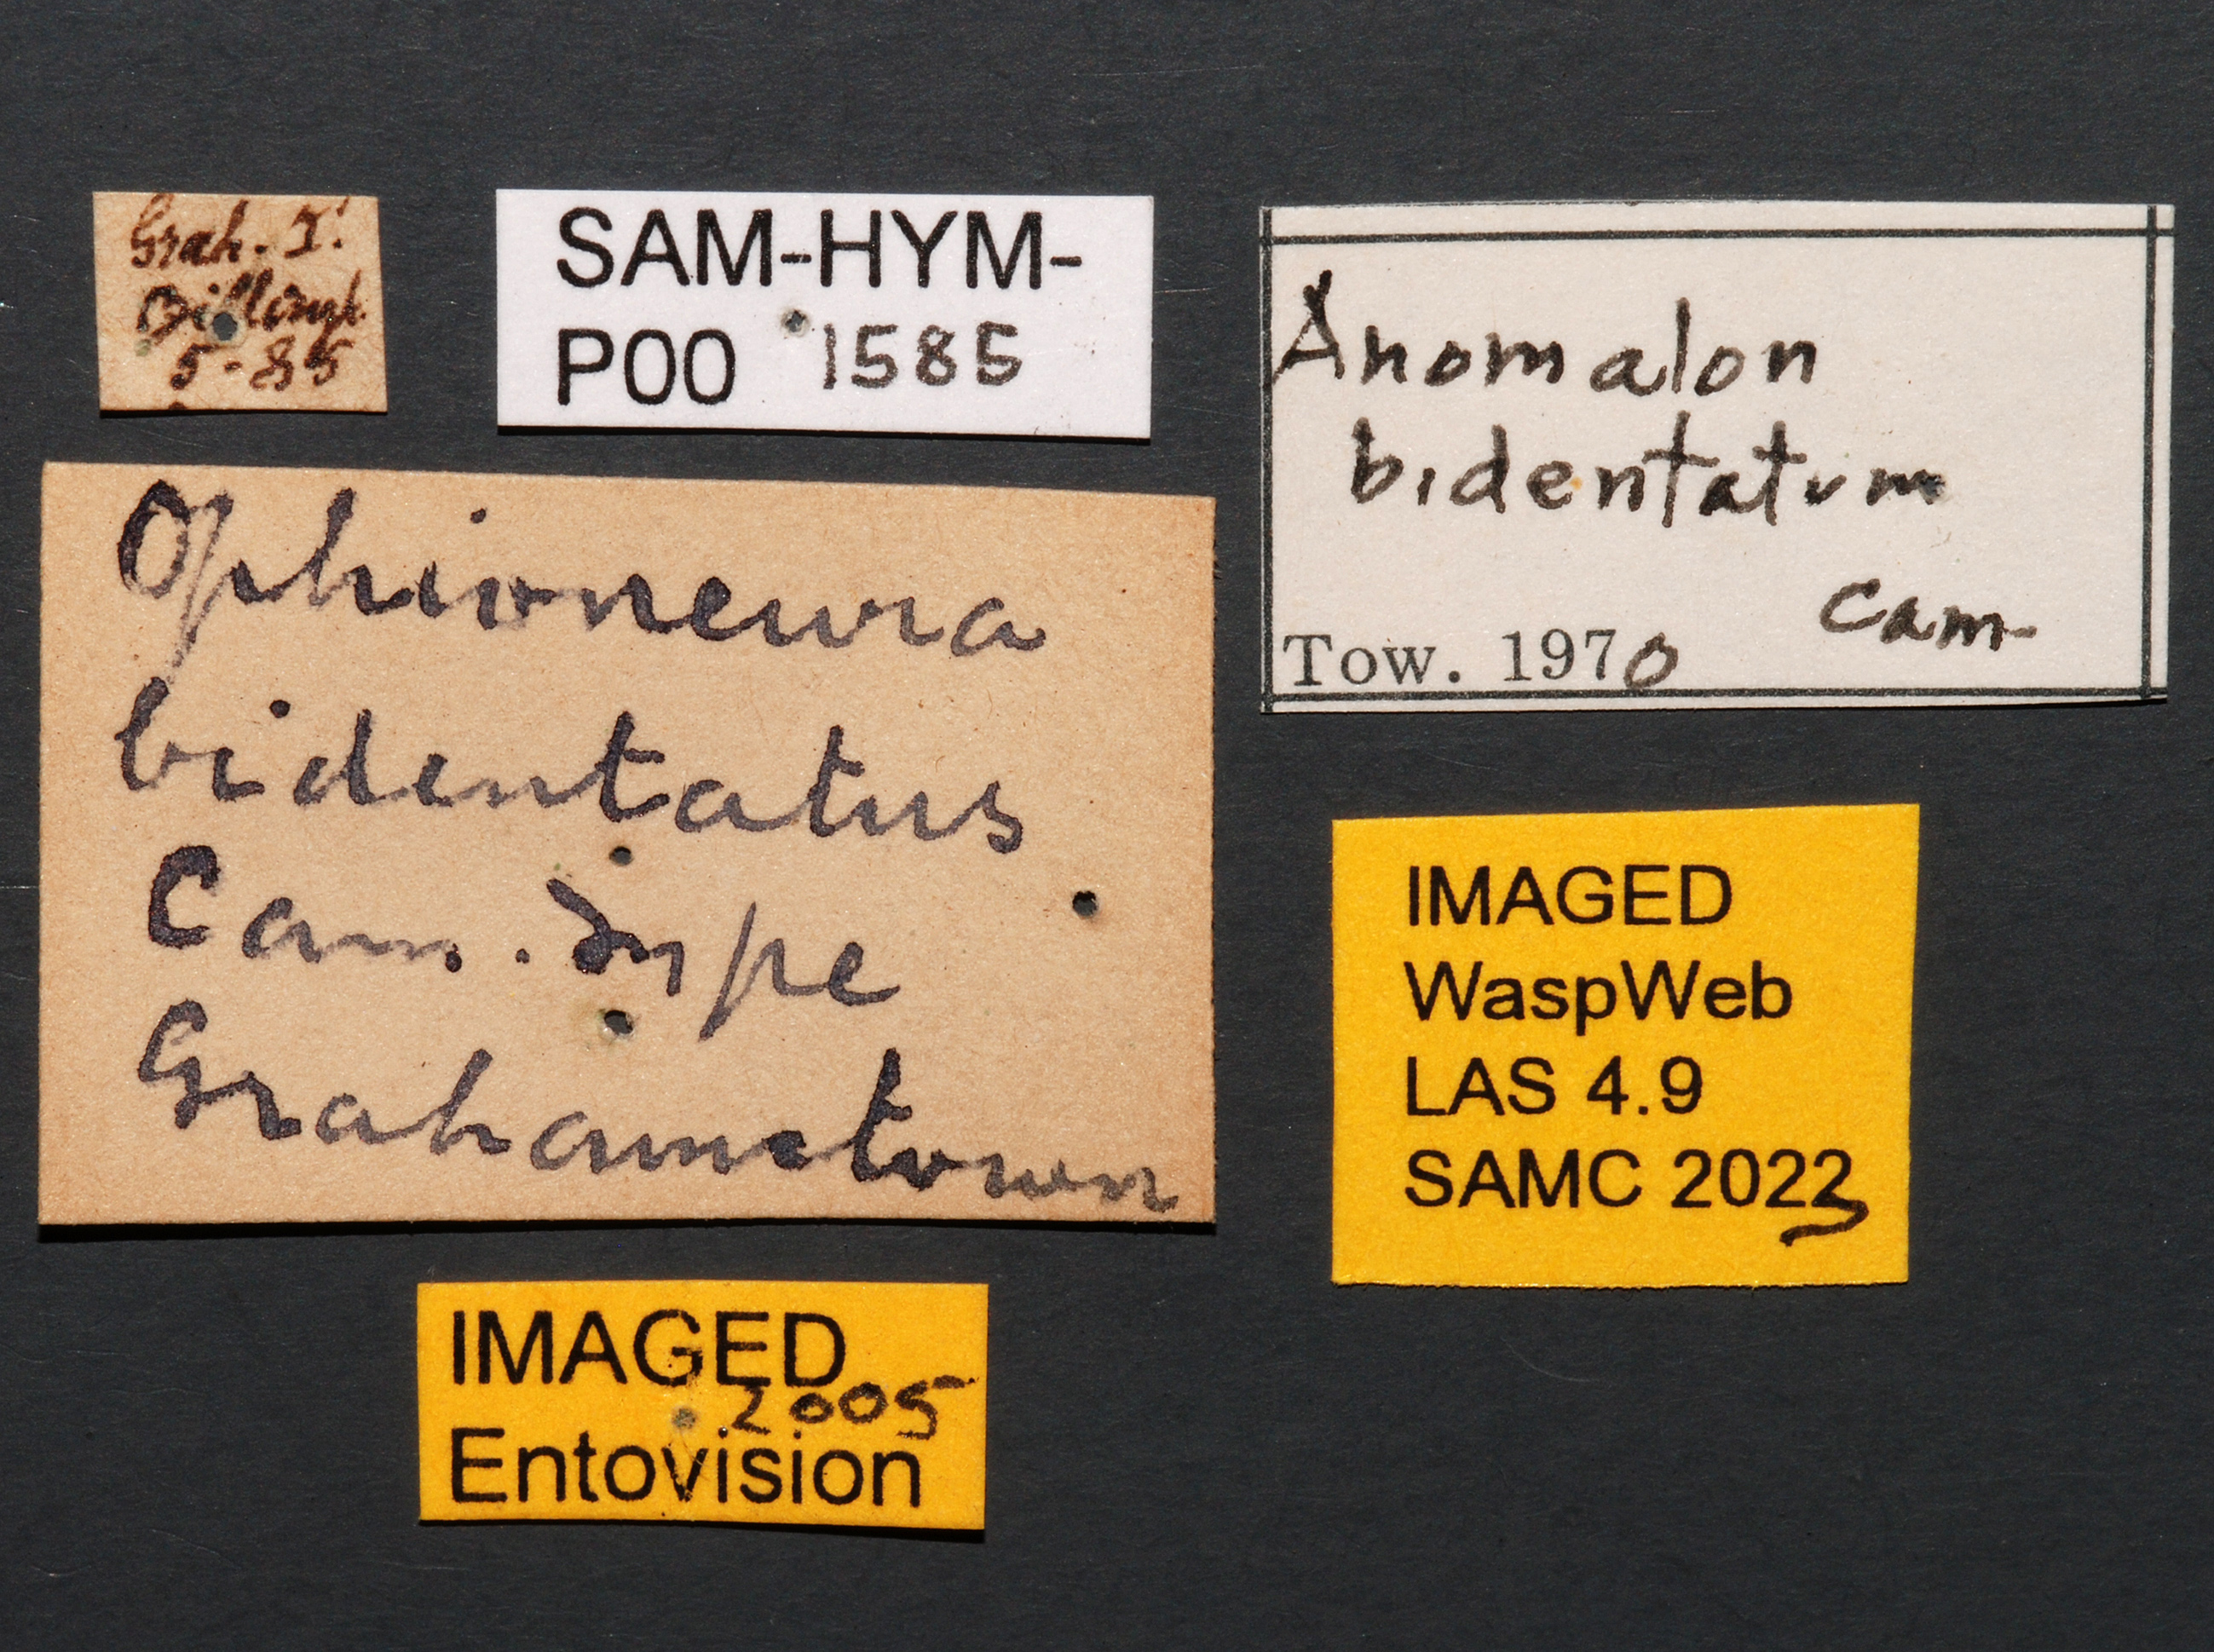 Grah. T.
5-85
SAM-HYM-
P00 1585
Anomalon
bidentatum
Cam
Tow. 1970
Ophioneura
bidentatus
Cam. Type
Grahamstown
IMAGED
WaspWeb
LAS 4.9
SAMC 2023
IMAGED
2005
Entovision